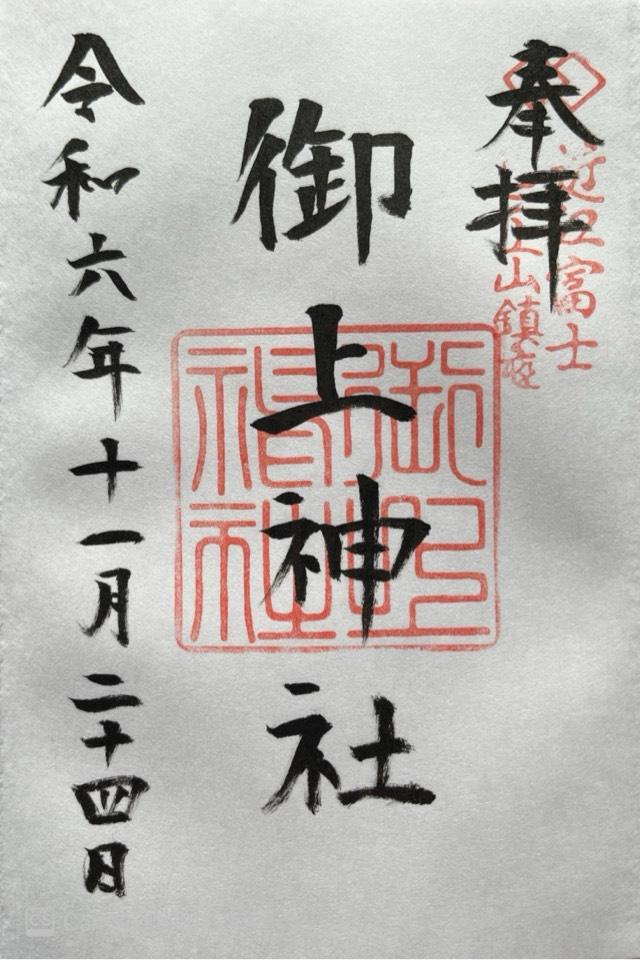 奉拝
近江富士
三上山鎮座
御上神社
御上神社
令和六年十一月二十四日